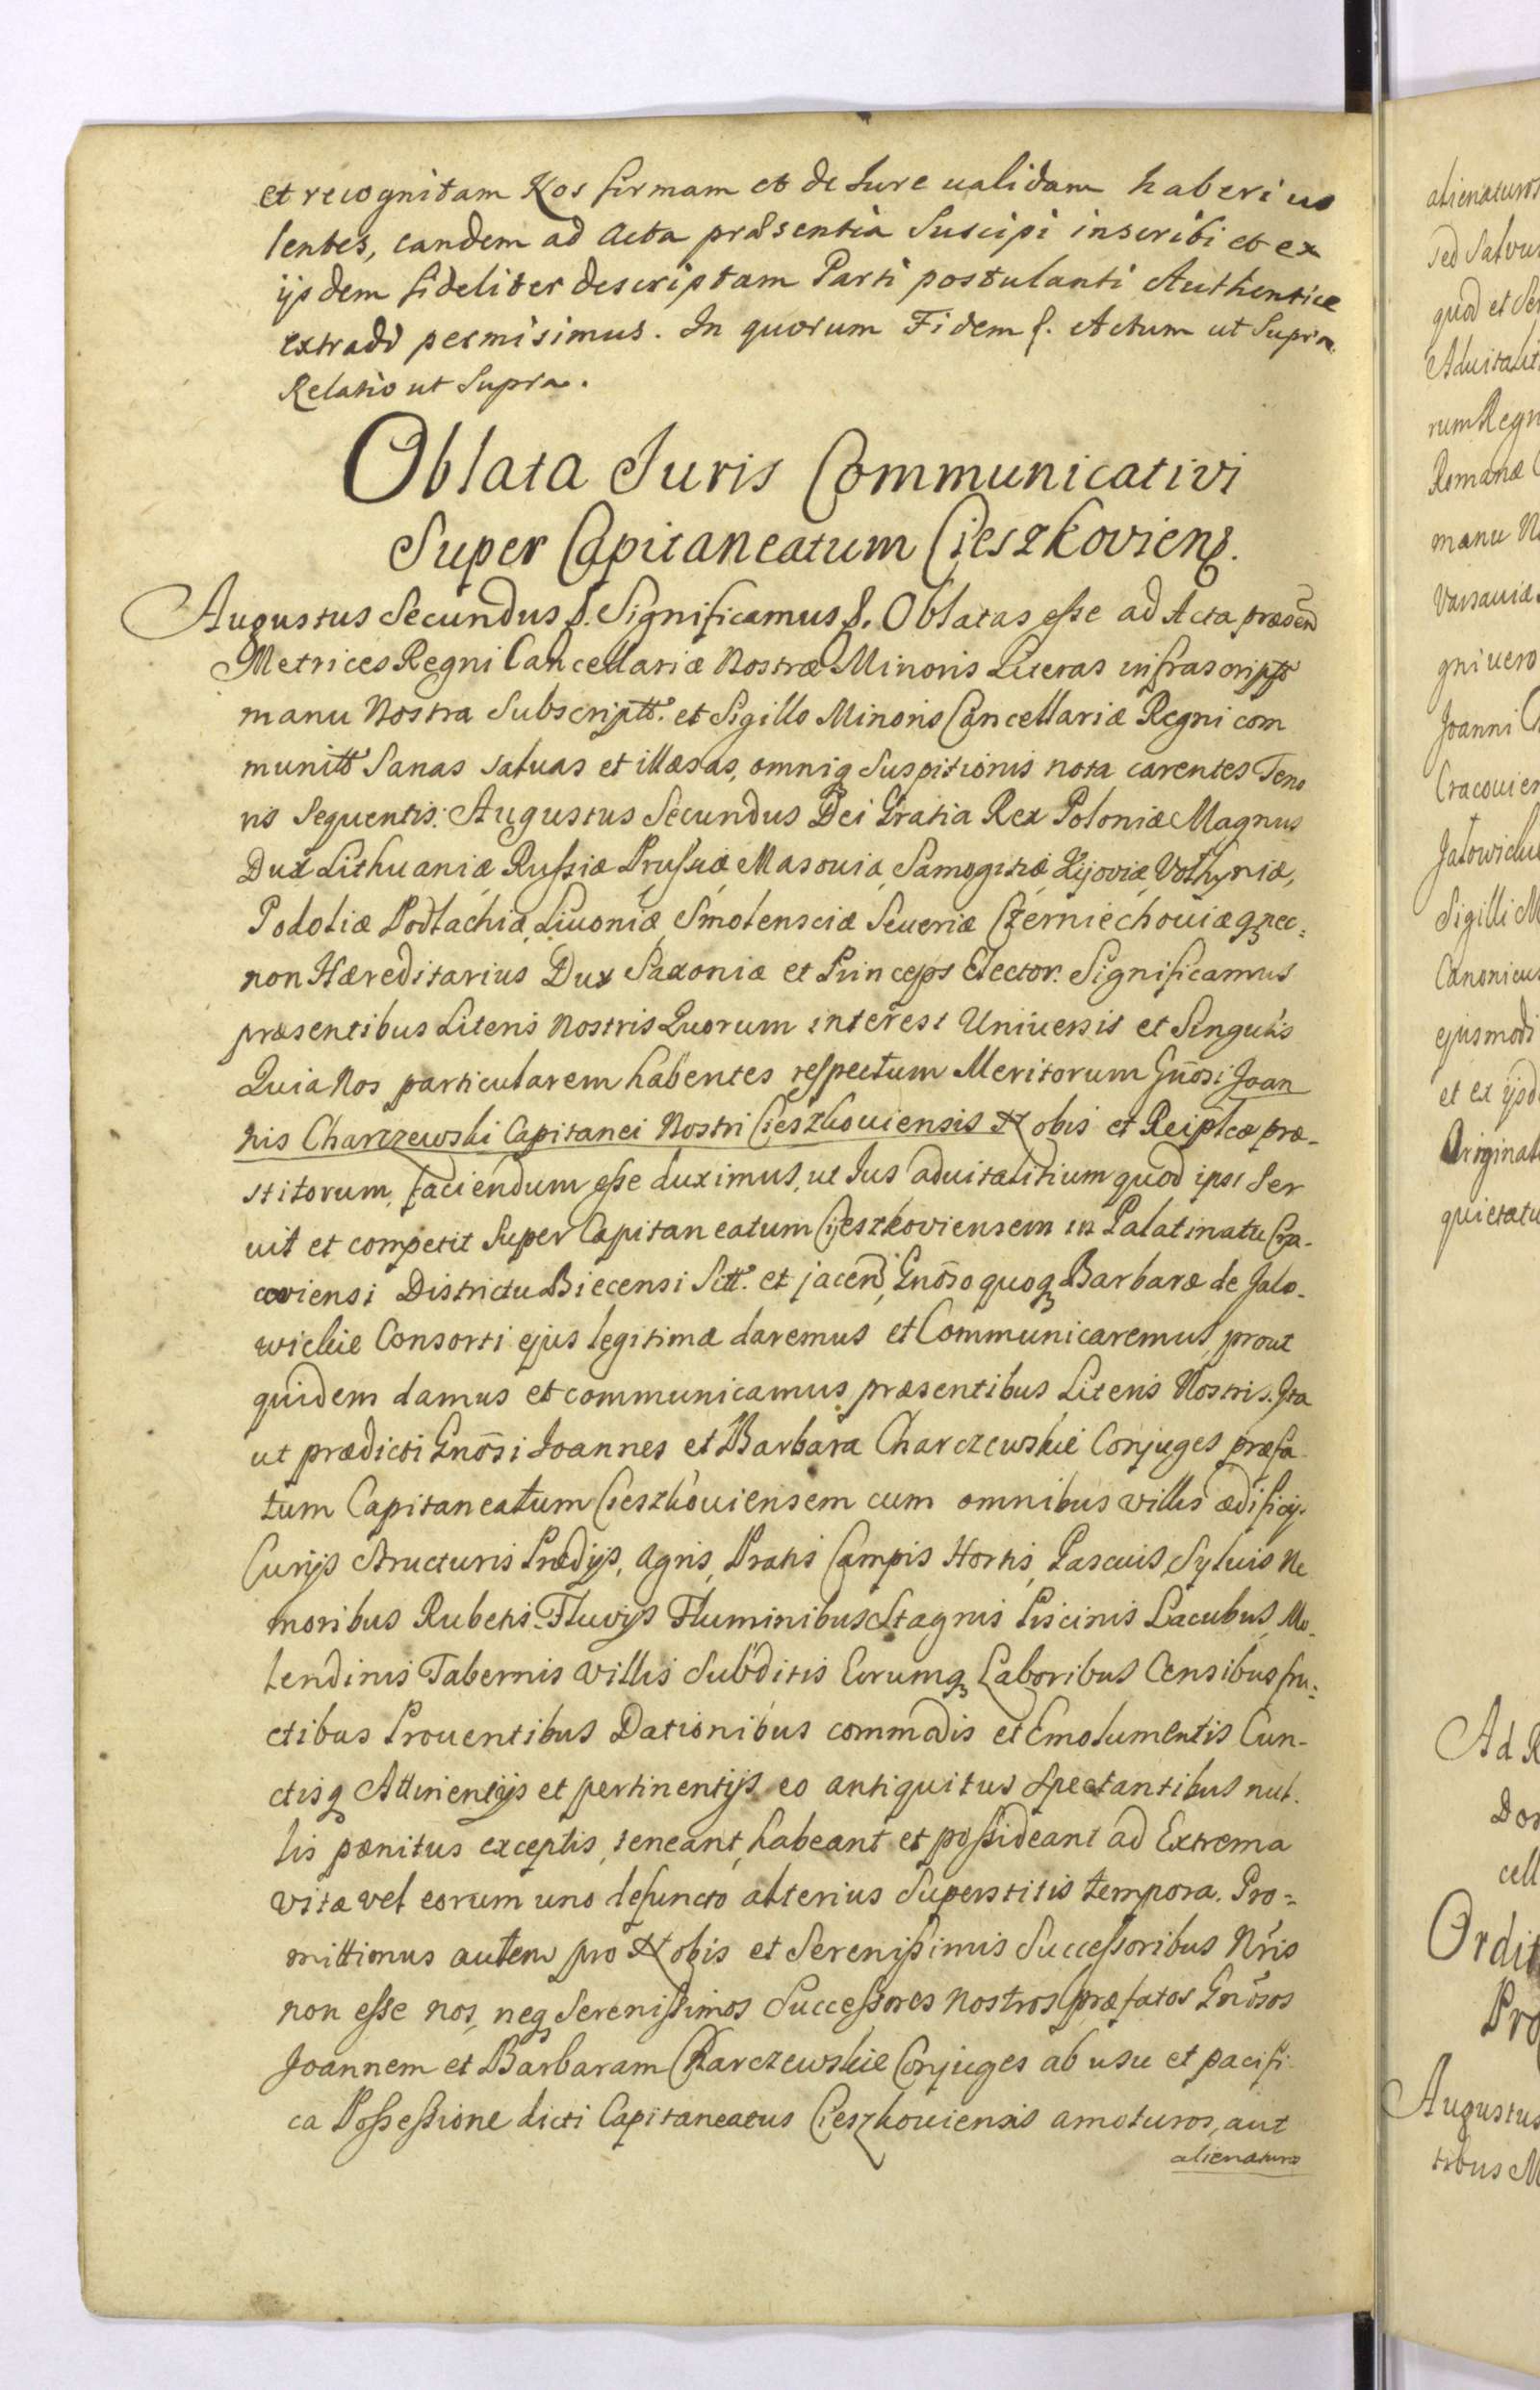 et recognitam Nos firmam et de Iure ualidam haberi uo
lentes, eandem ad Acta præsentia Suscipi inscribi et ex
ijsdem fideliter descriptam Parti postulanti Authentice
extradi permisimus. In quorum Fidem §. Actum ut Supra.
Relatio ut Supra.
Oblata Iuris Communicativi
Super Capitaneatum Cieszkoviens.
Augustus Secundus §. Significamus §. Oblatas esse ad Acta præsend
Metrices Regni Cancellariæ Nostræ Minoris Literas infrascriptt
manu Nostra Subscriptt. et Sigillo Minoris Cancellariæ Regni com
munitt Sanas saluas et illæsas, omniq Suspitionis nota carentes Teno
ris Sequentis: Augustus Secundus Dei Gratia Rex Poloniæ Magnus
Dux Lithuaniæ Russiæ Prussiæ Masouiæ, Samogitiæ Kijoviæ, Volhyniæ,
Podoliæ Podlachiæ, Liuoniæ, Smolensciæ Seueriæ Czerniechouiæq nec=
non Hæreditarius Dux Saxoniæ et Princeps Elector. Significamus
præsentibus Literis Nostris Quorum interest Uniuersis et Singulis
Quia Nos particularem habentes respectum Meritorum Gnosi Joan
nis Charczewski Capitanei Nostri Cieszkouiensis Nobis et Reiplcæ præ-
stitorum, faciendum esse duximus, ut Ius aduitalitium quod ipsi Ser
uit et competit Super Capitaneatum Cieszkoviensem in Palatinatu Cra-
coviensi Districtu Biecensi Sitt. et jacend, Gnoso quoq Barbaræ de Jalo-
wickie Consorti ejus legitimæ daremus et Communicaremus, prout
quidem damus et communicamus præsentibus Literis Nostris. Ita
ut prædicti Gnosi Ioannes et Barbara Charczewskie Conjuges præfa
tum Capitaneatum Cieszkouiensem cum omnibus villis ædificijs
Curijs structuris Prædijs, agris, Pratis Campis Hortis, Pascuis, Syluis Ne
moribus Rubetis Fluvijs Fluminibus Stagnis Piscinis Lacubus, Mo-
lendinis Tabernis villis Subditis Eorumq Laboribus Censibus fru=
ctibus Prouentibus Dationibus commodis et Emolumentis Cun-
ctisq Attinentijs et pertinentijs eo antiquitus Spectantibus nul.
lis pænitus exceptis, teneant, habeant et possideant ad Extrema
vitæ vel eorum uno defuncto alterius Superstitis tempora. Pro=
mittimus autem pro Nobis et Serenissimis Successoribus Nris
non esse nos, neq Serenissimos Successores nostros præfatos Gnosos
Joannem et Barbaram Charczewskie Conjuges ab usu et pacifi
ca Possessione dicti Capitaneatus Cieszkouiensis amoturos, aut
alienaturos
alienaturos
sed saluu
quod et Se
Aduitalit
rum Regn
Romanæ C
manu No
Varsauiæ
gni uero
Joanni Ch
Cracouien
Jalowicki
Sigilli M
Canonicus
ejusmodi
et ex ijsd
Original
quietatu
Ad R
Dos
cell
Ordi
Pro
Augustus
tibus M